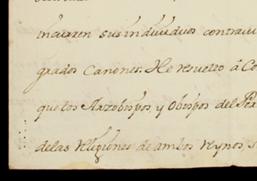 incurren sus individuos contravi
grados Canones. He resuelto à Co
que los Arzobispos y Obispos del
de las Religiones de ambos Reynos s